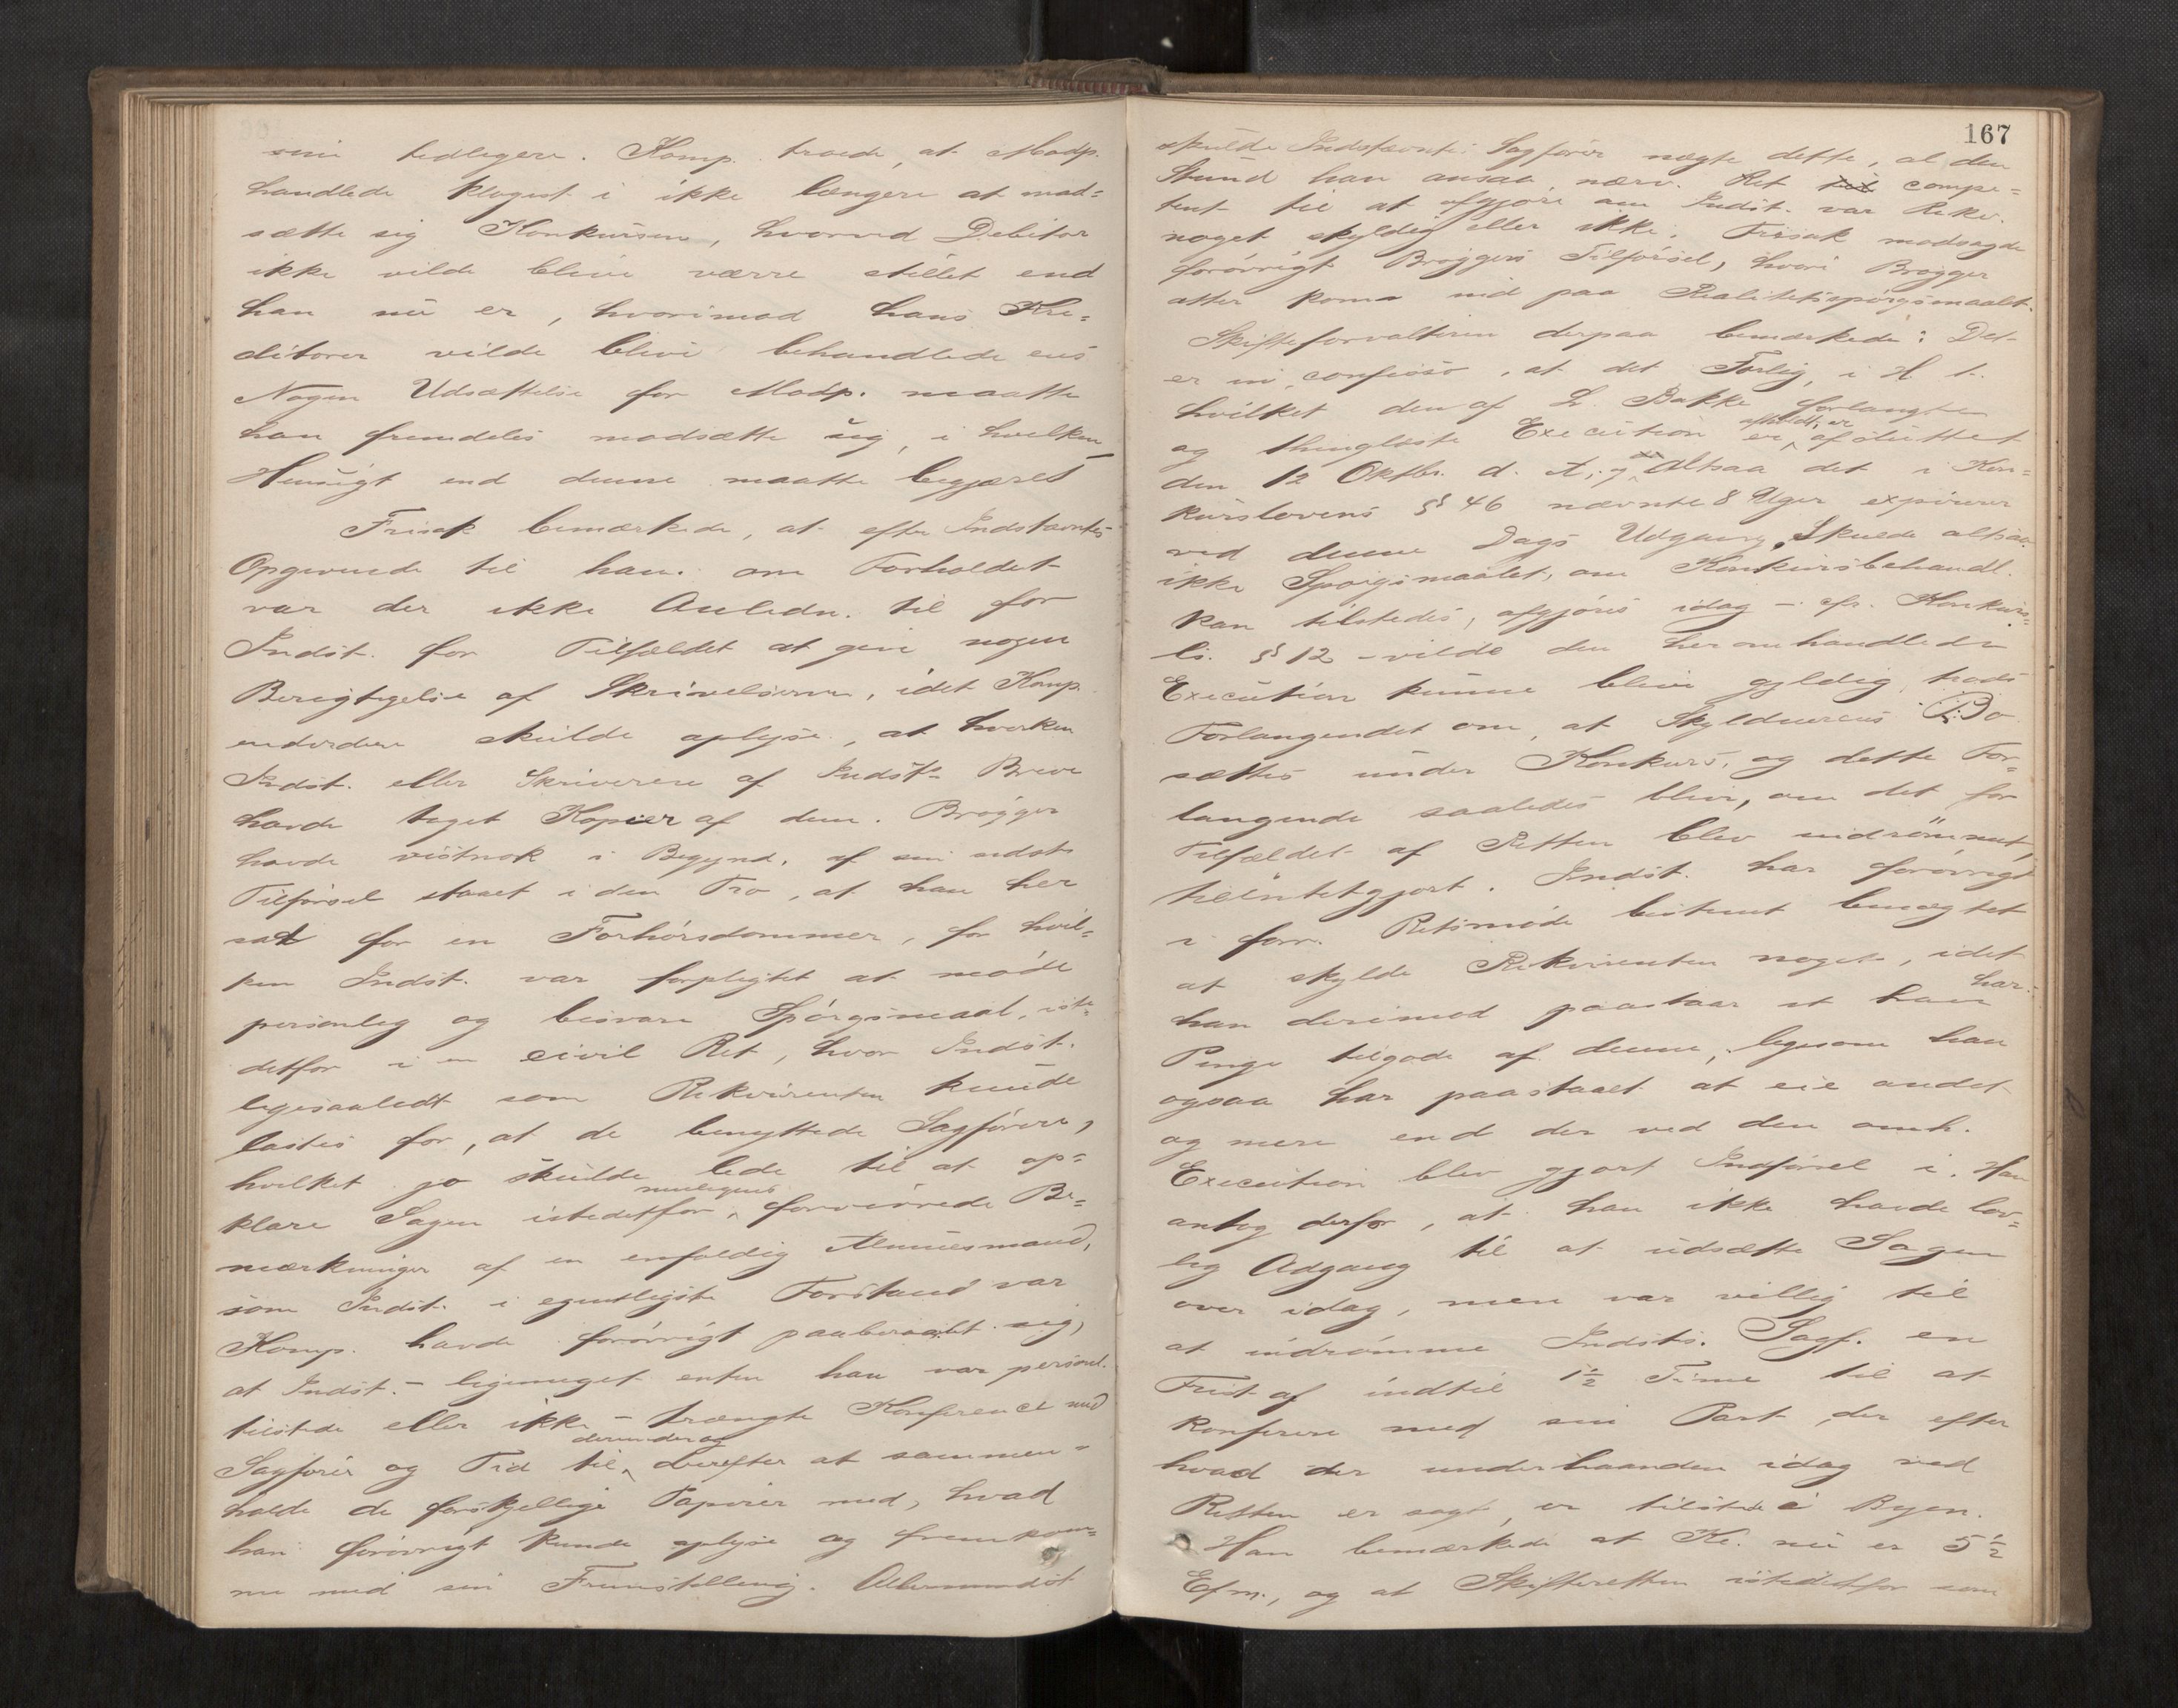 sin tidligere. Komp. troede, at Modp.
handlede klogest i ikke længere at mod=
sætte sig Konkursen, hvorved Debitor
ikke vilde blive værre stillet end
han nu er, hvorimod hans Kre=
ditorer vilde blive behandlede ens
Nogen Udsættelse for Modp. maatte
han fremdeles modsætte sig, i hvilken
Hensigt end denne maatte begjæres
Frisak bemærkede, at efter Indstævntes
Opgivende til ham om Forholdet
var der ikke Anledn. til for
Indst. for Tilfældet at give nogen
Berigtigelse af Skrivelserne, idet Komp.
endvidere skulde oplyse, at hverken
Indst. eller Skriveren af Indst. Breve
havde taget Kopier af dem. Brøgger
havde vistnok i Begynd. af sin sidste
Tilførsel staaet i den Tro, at han her
sat for en Forhørsdommer, for hvil=
ken Indst. var forpligtet at møde
personlig og besvare Spørgsmaal, iste=
detfor i en civil Ret, hvor Indst.
ligesaalidt som Rekvirenten kunde
lastes for, at de benyttede Sagførere,
hvilket jo skulde lede til at op=
klare Sagen istedetfor muligens forvirrede Be=
mærkninger af en enfoldig Almuesmand,
som Indst. i egentligste Forstand var
Komp. havde forøvrigt paaberaabt sig,
at Indst. – ligemeget enten han var personl.
tilstede eller ikke – trængte Konference med
Sagfører og Tid til derunder og derefter at sammen=
holde de forskjellige Papirer med, hvad
han forøvrigt kunde oplyse og fremkom=
me med sin Fremstilling. Allermindst
167
skulde Indstævntes Sagfører nægte dette, al den
Stund han ansaa nærv. Ret compe=
tent til at afgjøre om Indst. var Rekv.
noget skyldig eller ikke. Frisak modsagde
forøvrigt Brøggers Tilførsel, hvori Brøgger
atter kom ind paa Realitetsspørgsmaalet.
Skifteforvalteren derpaa bemærkede: Det
er in confesso, at det Forlig, i H. t.
hvilket den af L. Bakke forlangte
og thinglæste Execution er afholdt, er afsluttet
den 12 Oktbr. d. A.; Altsaa det i Kon=
kurslovens § 46 nævnte 8 Uger expirerer
ved denne Dags Udgang. Skulde altsaa
ikke Spørgsmaalet, om Konkursbehandl.
kan tilstedes, afgjøres idag – cfr. Konkurs=
ls. § 12 – vilde den heromhandlede
Execution kunne blive gyldig, trods
Forlangendet om, at Skyldnerens Bo
sættes under Konkurs, og dette For=
langende saaledes bliv, om det for
Tilfældet af Retten blev indrømmet,
tilintetgjort. Indst. har forøvrigt
i forr. Retsmøde bestemt benægtet
at skylde Rekvirenten noget, idet
han derimod paastaar at han har
Penge tilgode af denne, ligesom han
ogsaa har paastaaet at eie andet
og mere end der ved den omh.
Execution blev gjort Indførsel i. Han
antog derfor, at han ikke havde lov=
lig Adgang til at udsætte Sagen
over idag, men var villig til
at indrømme Indsts. Sagf. en
Frist af indtil 1½ Time til at
konferere med sin Part der efter
hvad der underhaanden idag ved
Retten er sagt, er tilstede i Byen.
Han bemærkede at Kl. nu er 5½
Efm., og at Skifteretten istedetfor som